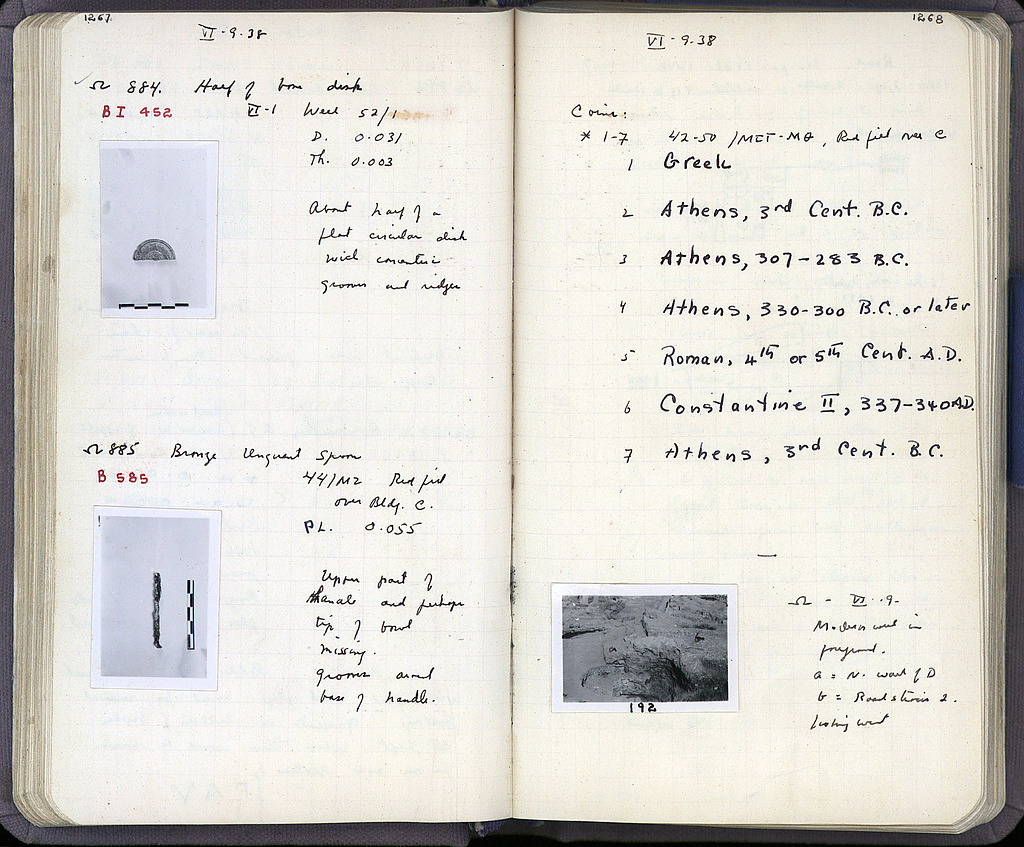 1267
VI-9-38
Ω 884. Half of bone disk
BI 452
VI-1 Well 52/1
D. 0.031
Th. 0.003
About half of a
flat circular disk
with concentric
grooves and ridges
Ω 885 Bronze Unguent Spoon
B 585
44/MZ Red fill
over Bldg. C.
PL. 0.055
Upper part of
handle and perhaps
tip of bowl
missing.
grooves around
base of handle.
1268
VI-9-38
Coins:
* 1-7 42-50 / Red fill over C
1 Greek
2 Athens, 3rd Cent. B.C.
3 Athens, 307-283 B.C.
4 Athens, 330-300 B.C. or later
5 Roman, 4th or 5th Cent. A.D.
6 Constantine II, 337-340 A.D.
7 Athens, 3rd Cent. B.C.
192
Ω - VI-9-
Modern wall in
foreground.
a = N. wall of D
b = Road 2.
looking west